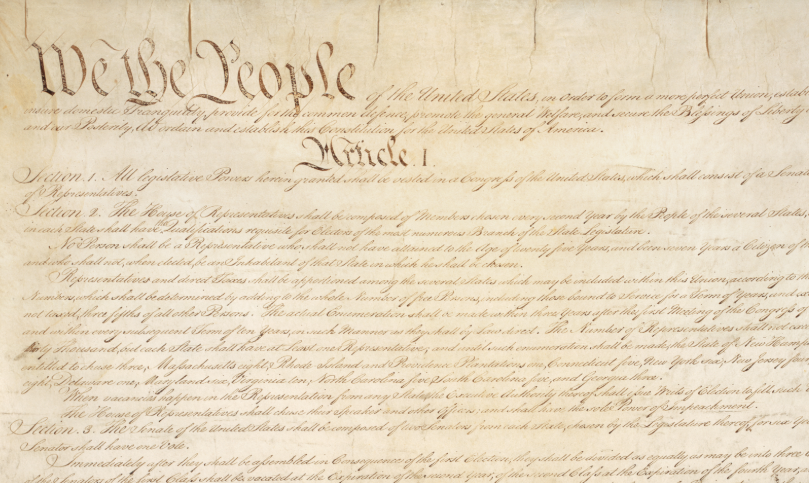 We the People of the United States, in Order to form a more perfect Union, estab
insure domestic Tranquility, provide for the common defence, promote the general Welfare, and secure the Blessings of Liberty
and our Posterity, do ordain and establish this Constitution for the United States of America.
Article. I.
Section. 1. All legislative Powers herein granted shall be vested in a Congress of the United States, which shall consist of a Senate
of Representatives.
Section. 2. The House of Representatives shall be composed of Members chosen every second Year by the People of the several States,
in each State shall have Qualifications requisite for Electors of the most numerous Branch of the State Legislature.
No Person shall be a Representative who shall not have attained to the Age of twenty five Years, and been seven Years a Citizen of
and who shall not, when elected, be an Inhabitant of that State in which he shall be chosen.
Representatives and direct Taxes shall be apportioned among the several States which may be included within this Union, according to
Numbers, which shall be determined by adding to the whole Number of free Persons, including those bound to Service for a Term of Years, and
not taxed, three fifths of all other Persons. The actual Enumeration shall be made within three Years after the first Meeting of the Congress of
and within every subsequent Term of ten Years, in such Manner as they shall by Law direct. The Number of Representatives shall not
thirty Thousand, but each State shall have at Least one Representative; and until such enumeration shall be made, the State of New Hamp
entitled to chuse three, Massachusetts eight, Rhode Island and Providence Plantations one, Connecticut five, New York six, New Jersey four
eight, Delaware one, Maryland six, Virginia ten, North Carolina five, South Carolina five, and Georgia three.
When vacancies happen in the Representation from any State, the Executive Authority thereof shall issue Writs of Election to fill such
The House of Representatives shall chuse their Speaker and other Officers; and shall have the sole Power of Impeachment.
Section. 3. The Senate of the United States shall be composed of two Senators from each State, chosen by the Legislature thereof, for six
Senator shall have one Vote.
Immediately after they shall be assembled in Consequence of the first Election, they shall be divided as equally as may be into three
of the Senators of the first Class shall be vacated at the Expiration of the second Year, of the second Class at the Expiration of the fourth Year,